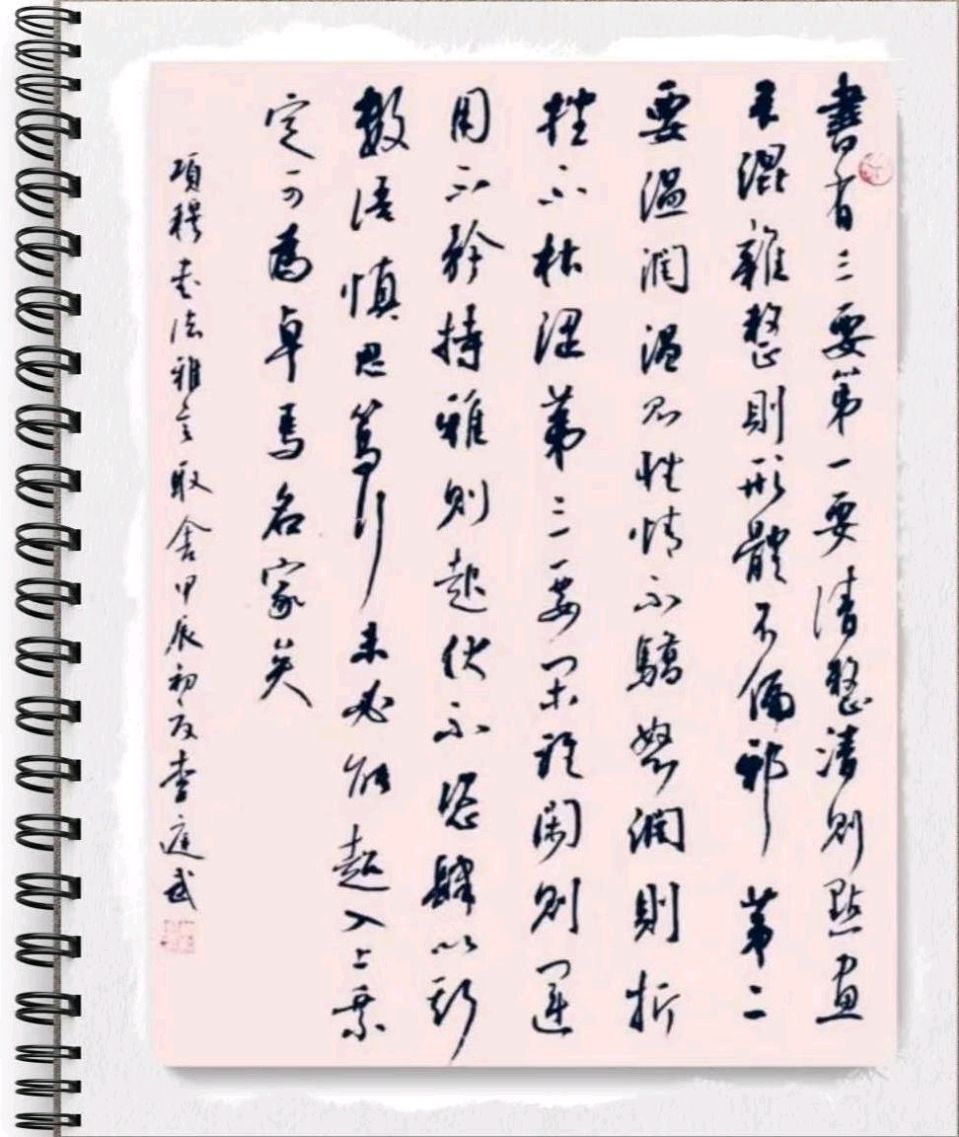 書有三要第一要清整清則點畫
不混雜整則形體不偏邪第二
要温潤温則性情不驕怒潤則折
挫不枯澀第三要閑雅閑則運
用不矜持雅則起伏不恣肆以斯
數語慎思篤行未必能超入上乘
定可為卓焉名家矣
項穆書法雅言取舍甲辰初夏李庭武